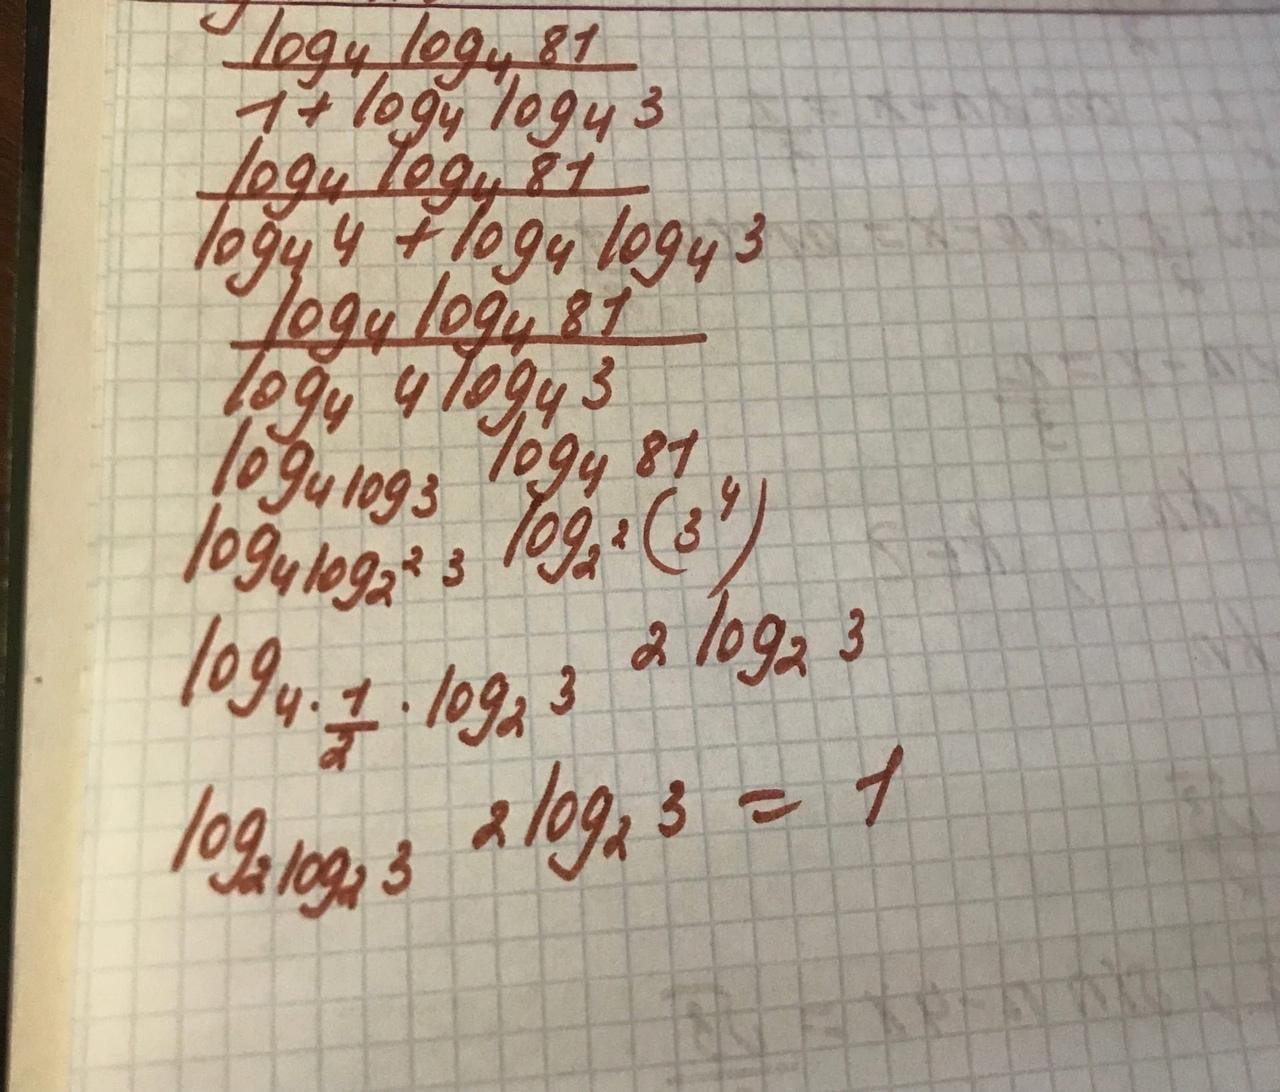 log₄ log₄ 81
1 + log₄ log₄ 3
log₄ log₄ 81
log₄ 4 + log₄ log₄ 3
log₄ log₄ 81
log₄ 4 log₄ 3
log₄ log 3 log₄ 81
log₄ log₂² 3 log₂² (3⁴)
log₄ · 1/2 · log₂ 3 2 log₂ 3
log₂ log₂ 3 2 log₂ 3 = 1